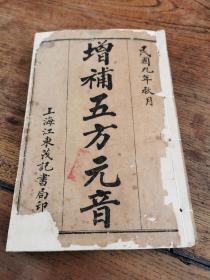 民國九年秋月
增補五方元音
上海江東茂記書局印